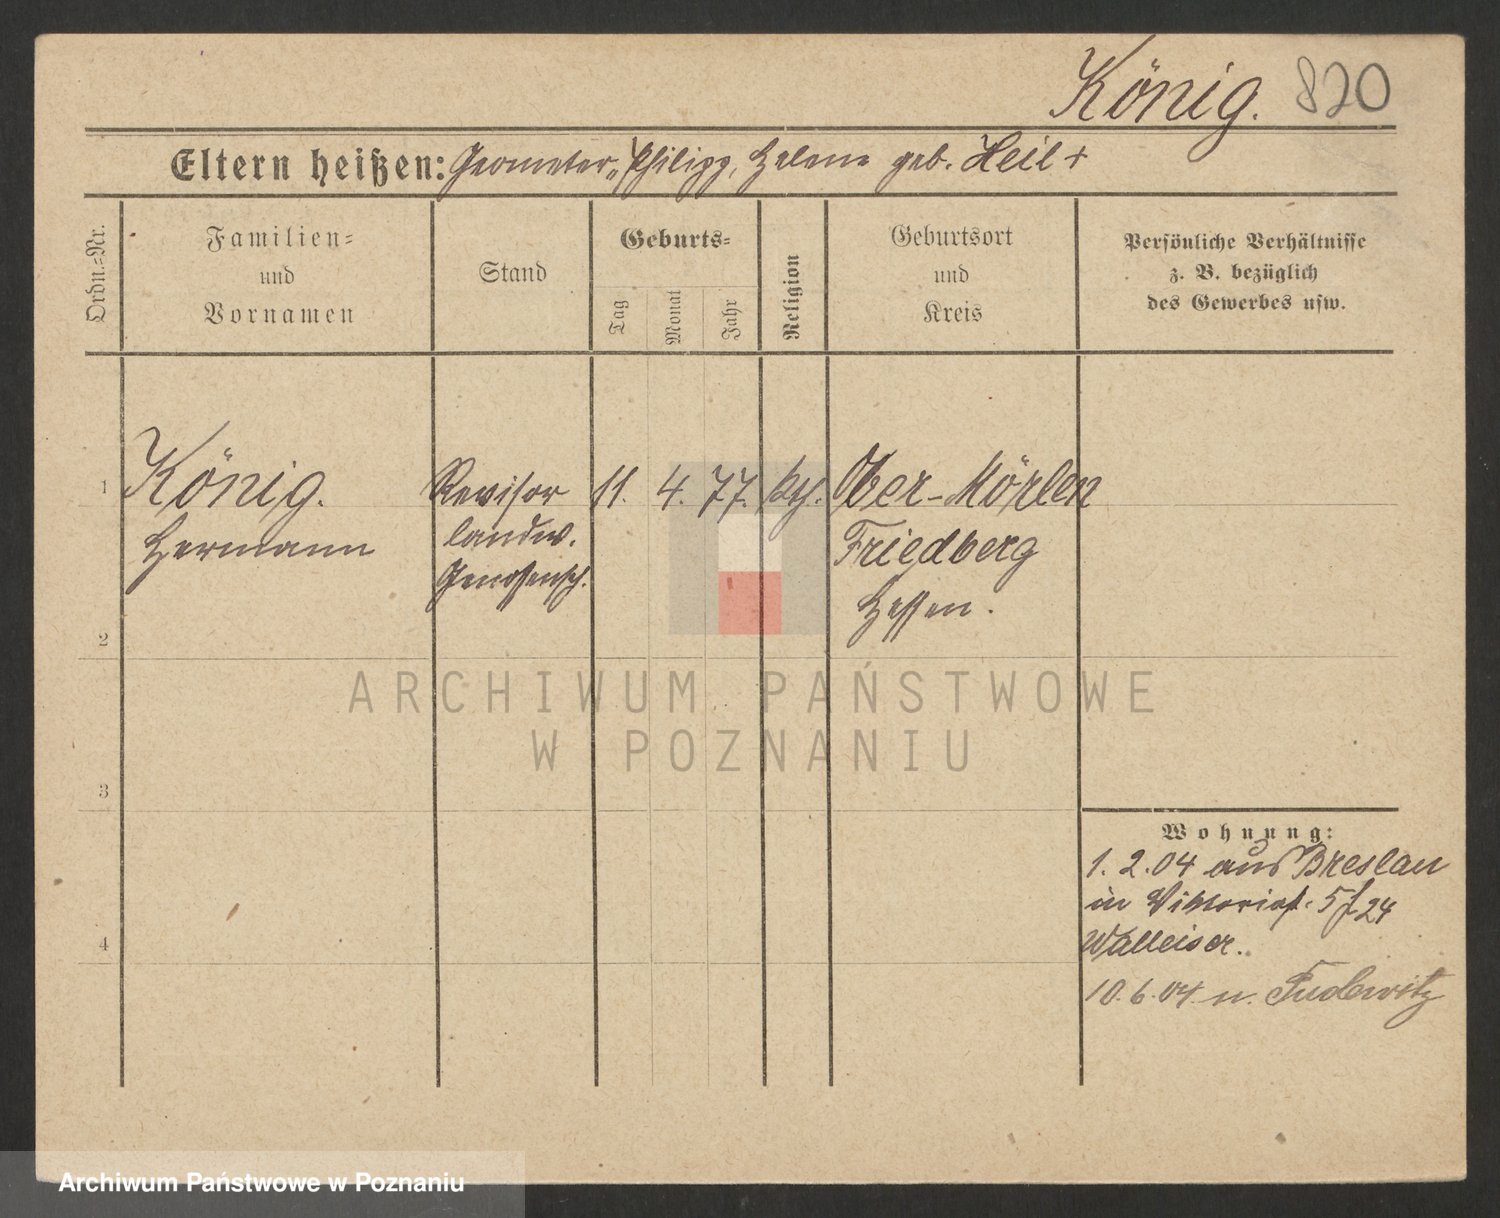 König. 820
Eltern heißen: Geometer, Philipp, Helene geb. Heil +
Ordn.=Nr.
Familien=
und
Vornamen
Stand
Geburts=
Tag
Monat
Jahr
Religion
Geburtsort
und
Kreis
Persönliche Verhältnisse
z. B. bezüglich
des Gewerbes usw.
1 König. Revisor 11. 4. 77. kth. Ober-Mörlen
Hermann landw. Friedberg
Genossensch. Hessen.
2
3
4
Wohnung:
1. 2. 04 aus Breslau
in Viktoriast. 5 f 24
Walleiser.
10. 6. 04 n. Pudewitz
ARCHIWUM PAŃSTWOWE
W POZNANIU
Archiwum Państwowe w Poznaniu